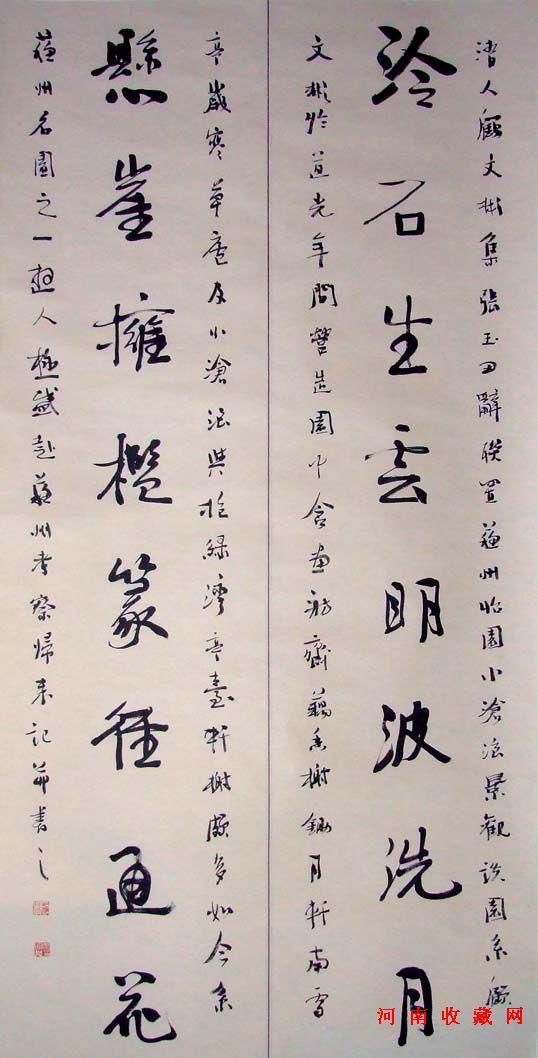 清人顧文彬集張玉田辭聯置蘇州怡園小滄浪景觀該園系顧
泠石生雲明波洗月
文彬於道光年間營造園中含畫舫齋藕香榭鋤月軒南雪
亭歲寒草廬及小滄浪與抱綠灣亭臺軒榭頗多如今系
懸崖擁檻篆徑通花
蘇州名園之一遊人極盛赴蘇州考察歸來記并書之
河南收藏网